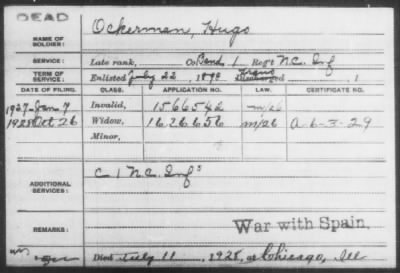 DEAD
NAME OF SOLDIER: Ockerman, Hugo
SERVICE: Late rank, Co. Band 1 Reg't N.C. Inf
TERM OF SERVICE: Enlisted July 22, 1898 Discharged , 1
DATE OF FILING. CLASS. APPLICATION NO. LAW. CERTIFICATE NO.
1927-Jan 7 Invalid, 1566542 m/26
1928 Oct 26 Widow, 1626656 m/26 A-6-3-29
Minor,
ADDITIONAL SERVICES: C 1 N.C. Inf
REMARKS: War with Spain.
Died July 11, 1928, at Chicago, Ill